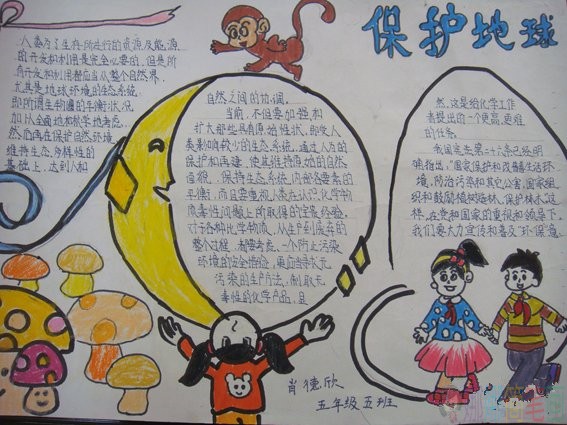 保护地球
人类为了生存所进行的资源及能源
的开发和利用是完全必要的，但是所
有开发和利用都应当从整个自然界，
尤其是地球环境的生态系统
即所谓生物圈的平衡状况
加以全面地权衡来地考虑
然后再在保护自然环境
维持生态多样性的
基础上，达到人和
自然之间的协调。
当前，不但要加强和
扩大那些具有原始性状，即受人
类影响较少的生态系统，通过人为的
保护和再建，使其维持原始的自然
面貌，保持生态系统内部各要素的
平衡，而且要重视人类在认识化学物
质毒性问题上所取得的宝贵经验。
对于各种化学物质，从生产到废弃的
整个过程，都要考虑一个防止污染
环境的安全措施，更应当寻求无
污染的生产方法，制取无
毒性的化学产品，且
然，这是给化学工作
者提出的一个更高，更难
的任务。
我国宪法第二十六条已经明
确指出："国家保护和改善生活环
境，防治污染和其它公害，国家组
织和鼓励植树造林，保护林木"这
样，在党和国家的重视和领导下，
我们要大力宣传和普及"环保"意
肖德欣
五年级五班